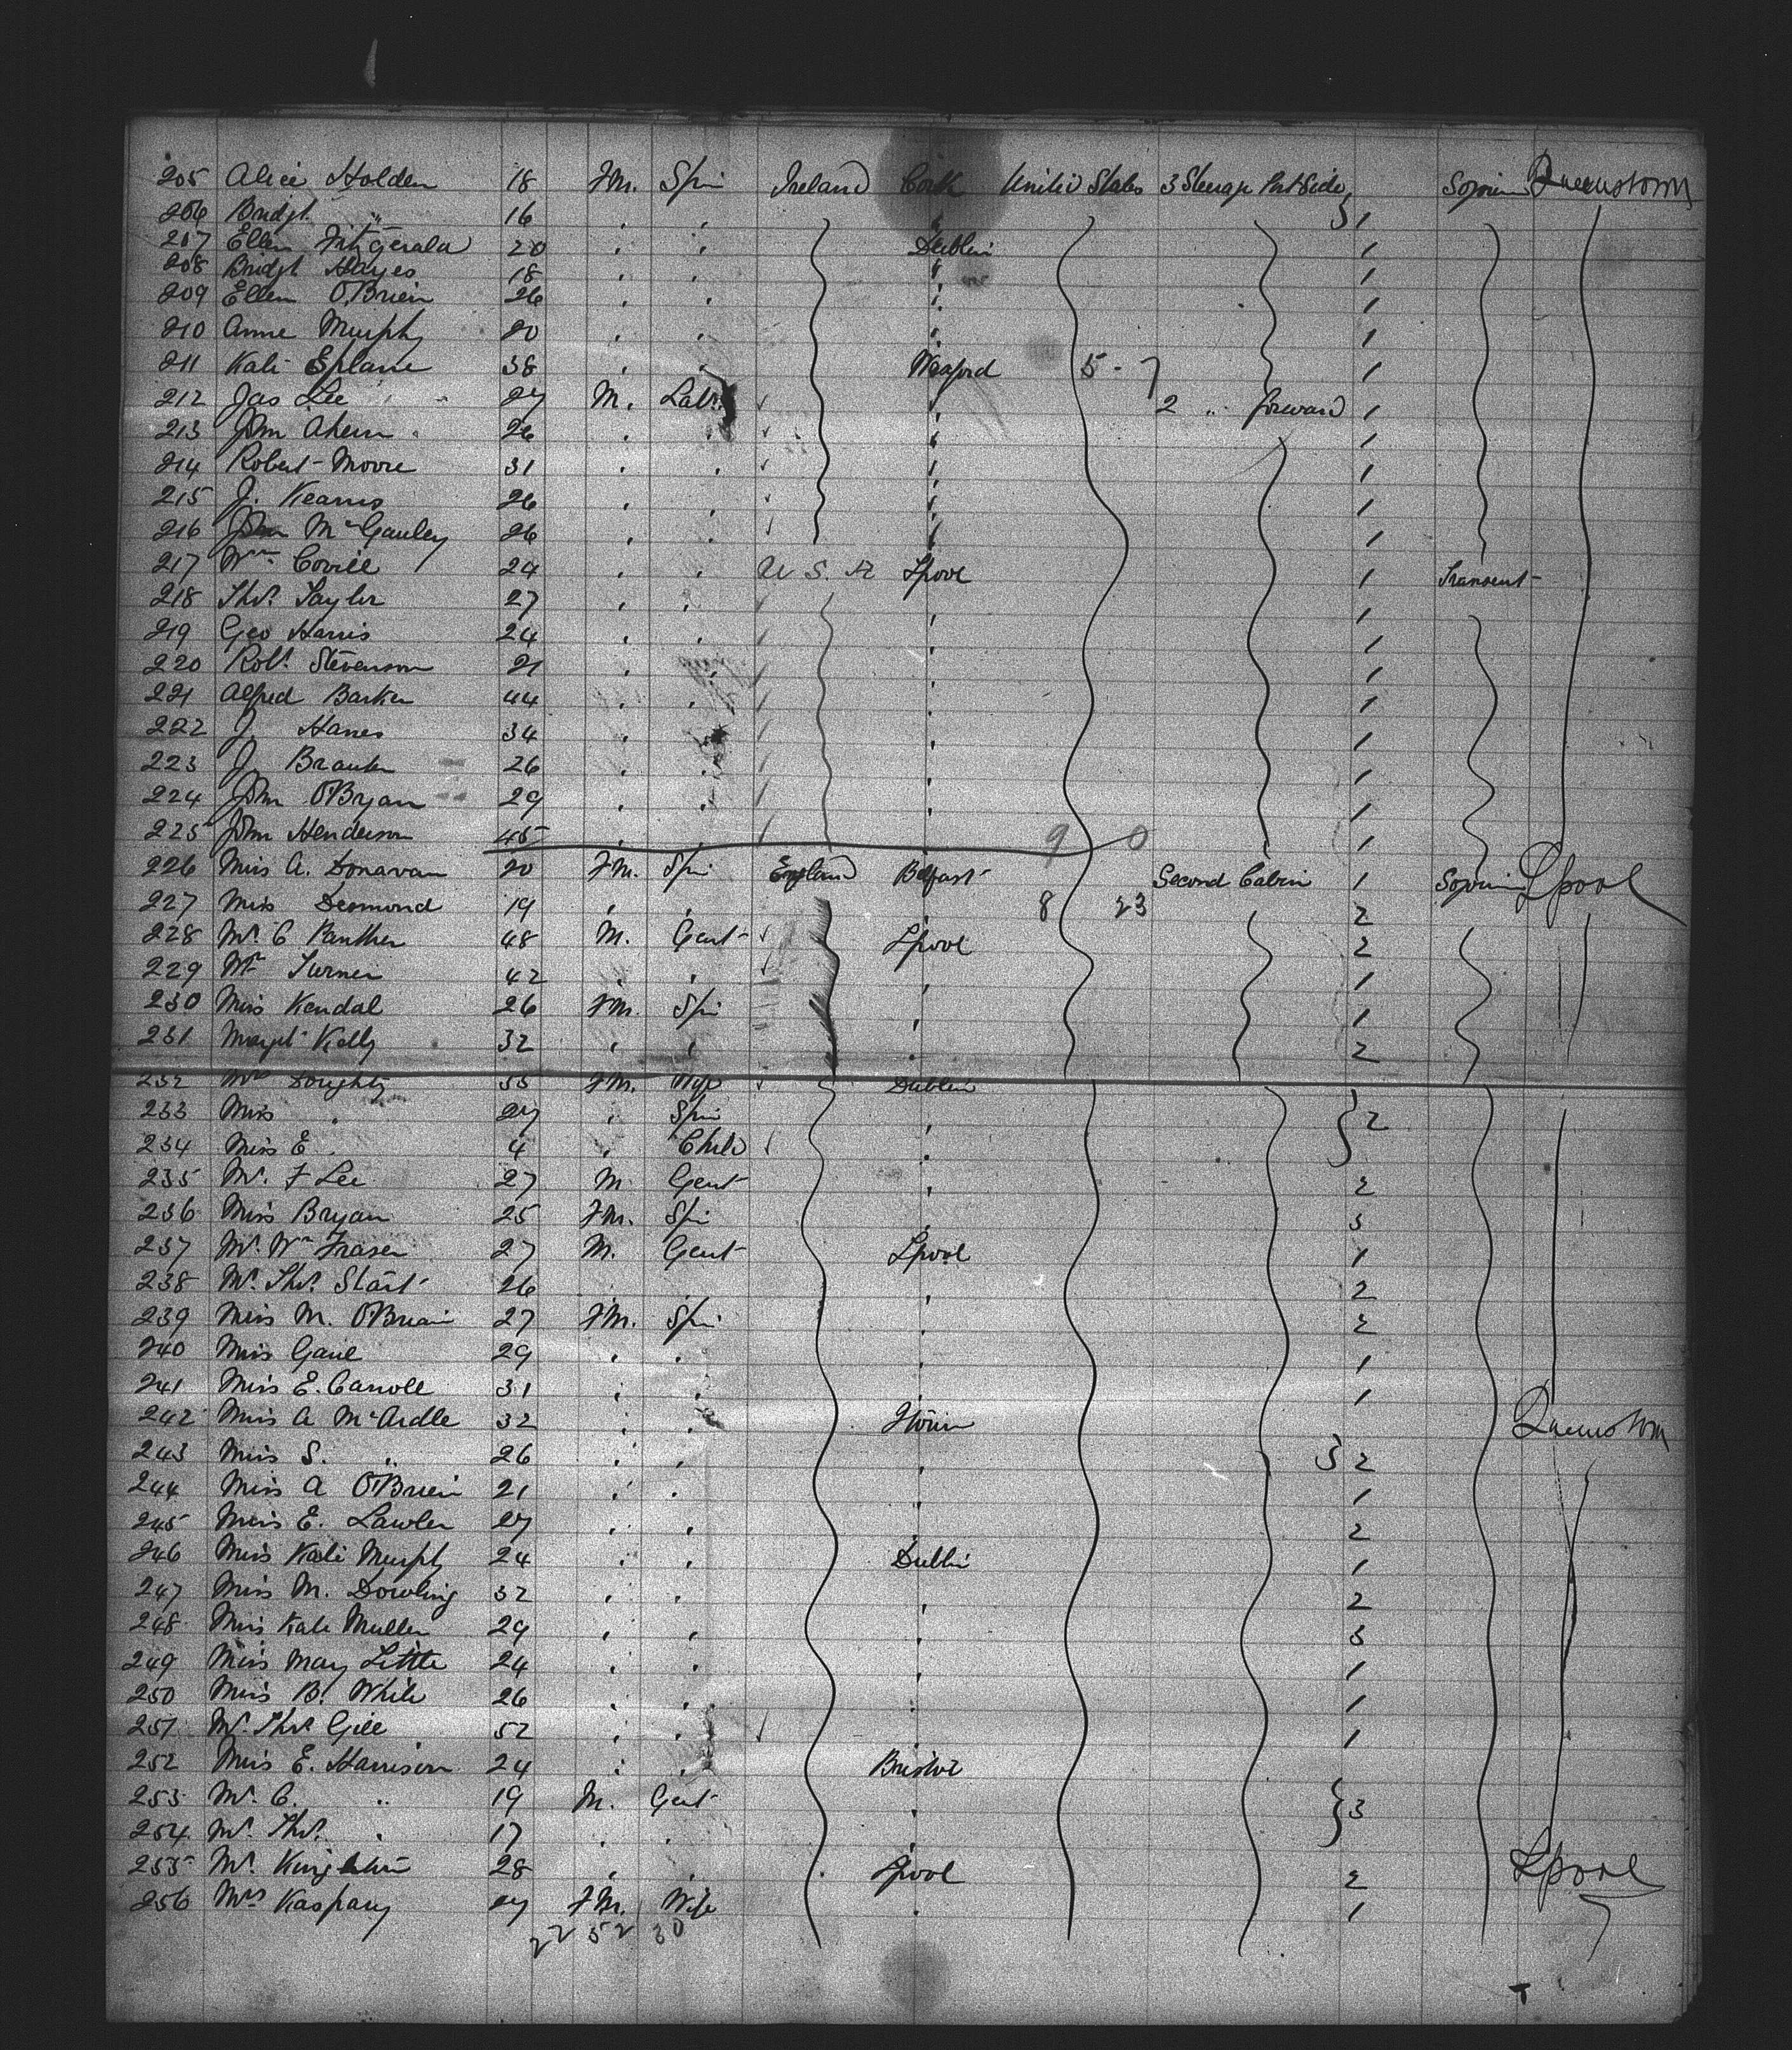 205 Alice Holden 18 Fm. Spin Ireland Cork United States 3 Steerage Port Side Sojourn Queenstown
206 Bridgt. " 16 } 1
207 Ellen Fitzgerald 20 Dublin 1
208 Bridgt Hayes 18 1
209 Ellen O'Brien 26 1
210 Anne Murphy 20 1
211 Kate Eplane 38 Wexford 5 - 7 1
212 Jas Lee 27 M. Labr. 2 " forward 1
213 John Ahern 26 1
214 Robert Moore 31 1
215 J. Kearns 26 1
216 John McGauley 26 1
217 Wm Covill 24 U.S.A Lpool 1 Transient
218 Thos. Taylor 27 1
219 Geo Harris 24 1
220 Robt. Stevenson 21 1
221 Alfred Barker 44 1
222 J. Hanes 34 1
223 J. 26 1
224 John O'Bryan 29 1
225 John Henderson 45 9 0 1
226 Miss A. Donavan 20 Fm. Spin England Belfast Second Cabin 1 Sojourn Lpool
227 Miss Desmond 19 8 23 2
228 Mr. C Panther 48 M. Gent Lpool 2
229 Mr Turner 42 1
230 Miss Kendal 26 Fm. Spin 1
231 Margt Kelly 32 2
232 Mrs Doughty 55 Fm. Wife Dublin
233 Miss " 27 Spin } 2
234 Miss E " 4 Child
235 Mr. F Lee 27 M Gent 2
236 Miss Bryan 25 Fm. Spin 3
237 Mr. Wm Fraser 27 M. Gent Lpool 1
238 Mr. Thos. Start 26 2
239 Miss M. O'Briain 27 Fm. Spin 2
240 Miss Gaul 29 1
241 Miss E. Carroll 31 1
242 Miss A McArdle 32 Queenstown
243 Miss S. " 26 } 2
244 Miss A O'Brien 21 1
245 Miss E. Lawler 27 2
246 Miss Kate Murphy 24 Dublin 1
247 Miss M. Dowling 32 2
248 Miss Kate Mullen 29 3
249 Miss May Little 24 1
250 Miss B. White 26 1
251 Mr. Thos. Gill 52 1
252 Miss E. Harrison 24 Bristol
253 Mr. C. " 19 M. Gent } 3
254 Mr. Thos. " 17
255 Mr. 28 Lpool 2 Lpool
256 Mrs Kaspary 27 Fm. Wife 1
22 52 30